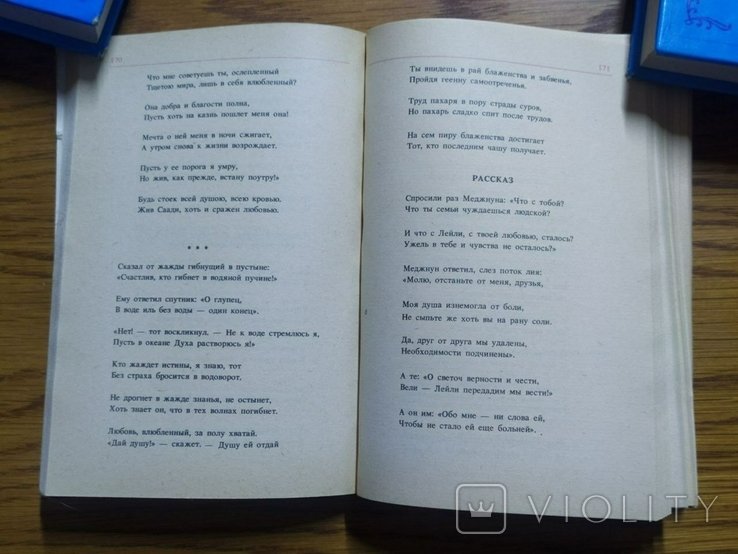 570
Что мне советуешь ты, ослепленный
Тщетою мира, лишь в себя влюбленный?
Она добра и благости полна,
Пусть хоть на казнь пошлет меня она!
Мечта о ней меня в ночи сжигает,
А утром снова к жизни возрождает.
Пусть у ее порога я умру,
Но жив, как прежде, встану поутру!»
Будь стоек всей душою, всею кровью.
Жив Саади, хоть и сражен любовью.
* * *
Сказал от жажды гибнущий в пустыне:
«Счастлив, кто гибнет в водяной пучине!»
Ему ответил спутник: «О глупец,
В воде иль без воды — один конец».
«Нет! — тот воскликнул. — Не к воде стремлюсь я,
Пусть в океане Духа растворюсь я!»
Кто жаждет истины, я знаю, тот
Без страха бросится в водоворот.
Не дрогнет в жажде знанья, не остынет,
Хоть знает он, что в тех волнах погибнет.
Любовь, влюбленный, за полу хватай.
«Дай душу!» — скажет. — Душу ей отдай
571
Ты внидешь в рай блаженства и забвенья,
Пройдя геенну самоотреченья.
Труд пахаря в пору страды суров,
Но пахарь сладко спит после трудов.
На сем пиру блаженства достигает
Тот, кто последним чашу получает.
РАССКАЗ
Спросили раз Меджнуна: «Что с тобой?
Что ты семьи чуждаешься людской?
И что с Лейли, с твоей любовью, сталось?
Ужель в тебе и чувства не осталось?»
Меджнун ответил, слез поток лия:
«Молю, отстаньте от меня, друзья,
Моя душа изнемогла от боли,
Не сыпьте же хоть вы на рану соли.
Да, друг от друга мы удалены,
Необходимости подчинены».
А те: «О светоч верности и чести,
Вели — Лейли передадим мы вести!»
А он им: «Обо мне — ни слова ей,
Чтобы не стало ей еще больней».
VIOLITY